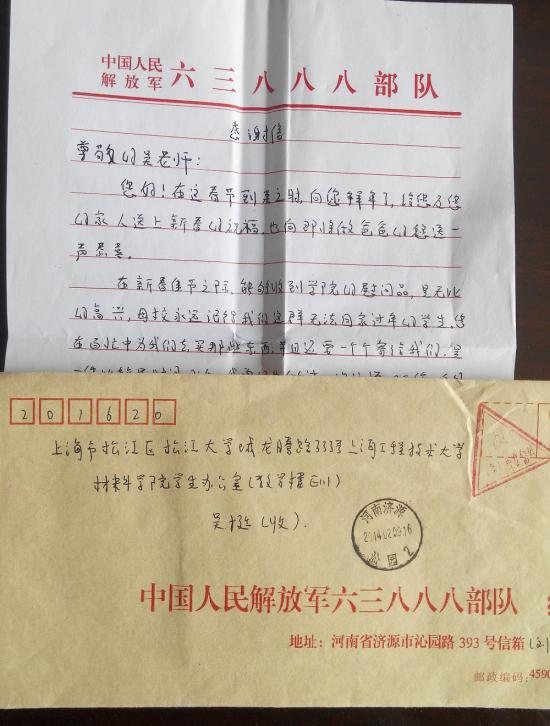 中国人民
解放军 六三八八八部队
感谢信
尊敬的吴老师：
您好！在这春节到来之时，向您拜年了，给您及您
的家人送上新春的祝福，也向即将做爸爸的您送一
声恭喜。
在新春佳节之际，能够收到学院的慰问品，是无比
的高兴，母校永远记得我们这群无法回家过年的学生。您
在百忙中为我们去买那些东西，并且还要一个个寄给我们，是
201620
上海市松江区松江大学城龙腾路333号上海工程技术大学
材料学院学生办公室（教学楼E111）
吴挺（收）.
河南济源
2014.02.09.16
沁园 2
中国人民解放军六三八八八部队
地址：河南省济源市沁园路 393 号信箱
邮政编码：4590